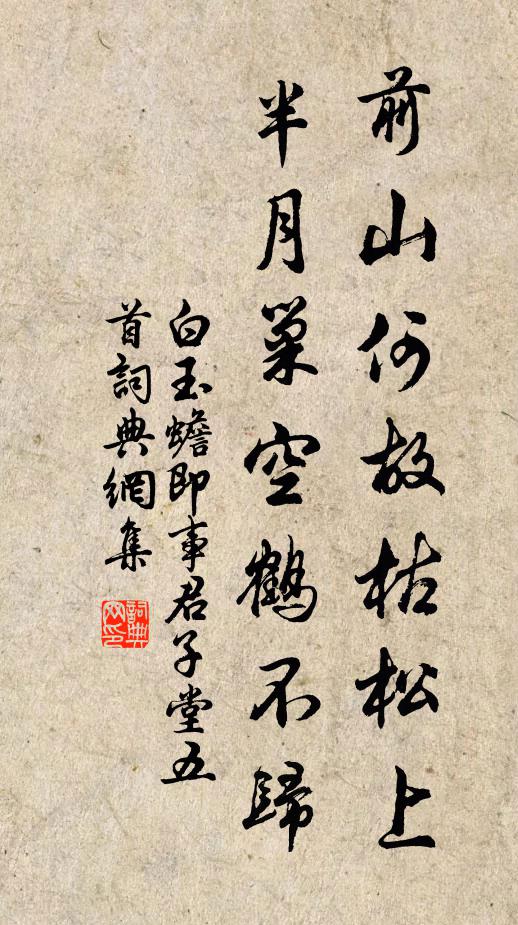 前山何故枯松上
半月巢空鶴不歸
白玉蟾即事君子堂五
首詞典網集
詞典
网印